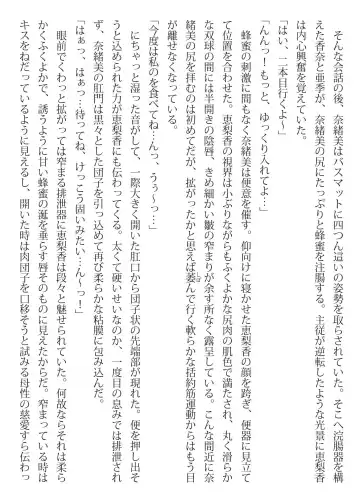 そんな会話の後、奈緒美はバスマットに四つん這いの姿勢を取らされていた。そこへ浣腸器を構
えた香奈と亜季が、奈緒美の尻にたっぷりと蜂蜜を注腸する。主従が逆転したような光景に恵梨香
は内心興奮を覚えていた。
「はい、二本目行くよ～」
「んんっ！もっと、ゆっくり入れてよ…」
　蜂蜜の刺激に間もなく奈緒美は便意を催す。仰向けに寝かせた恵梨香の顔を跨ぎ、便器に見立て
て位置を合わせた。恵梨香の視界は小ぶりながらもふくよかな尻肉の肌色で満たされ、丸く滑らか
な双球の間には半開きの陰唇、きめ細かい皺の窄まりが余す所なく露呈している。こんな間近に奈
緒美の尻を拝むのは初めてだが、拡がったかと思えば萎んで行く軟らかな括約筋運動からはもう目
が離せなくなっている。
「今度は私のを食べてね…んっ、うぅ～…っ」
　にちゃっと湿った音がして、一際大きく開いた肛口から団子状の先端部が現れた。便を押し出そ
うと込められた力が恵梨香にも伝わってくる。太くて硬いせいなのか、一度目の息みでは排泄され
ず、奈緒美の肛門は黒々とした団子を引っ込めて再び柔らかな粘膜に包み込んだ。
「はぁっ、はぁっ…待ってね、けっこう固いみたい…ん～っ！」
　眼前でくわっと拡がっては窄まる排泄器に恵梨香は段々と魅せられていた。何故ならそれは柔ら
かくふくよかで、誘うように甘い蜂蜜の涎を垂らす唇そのものに見えたからだ。窄まっている時は
キスをねだっているように見えるし、開いた時は肉団子を口移そうと試みる母性の慈愛すら伝わっ